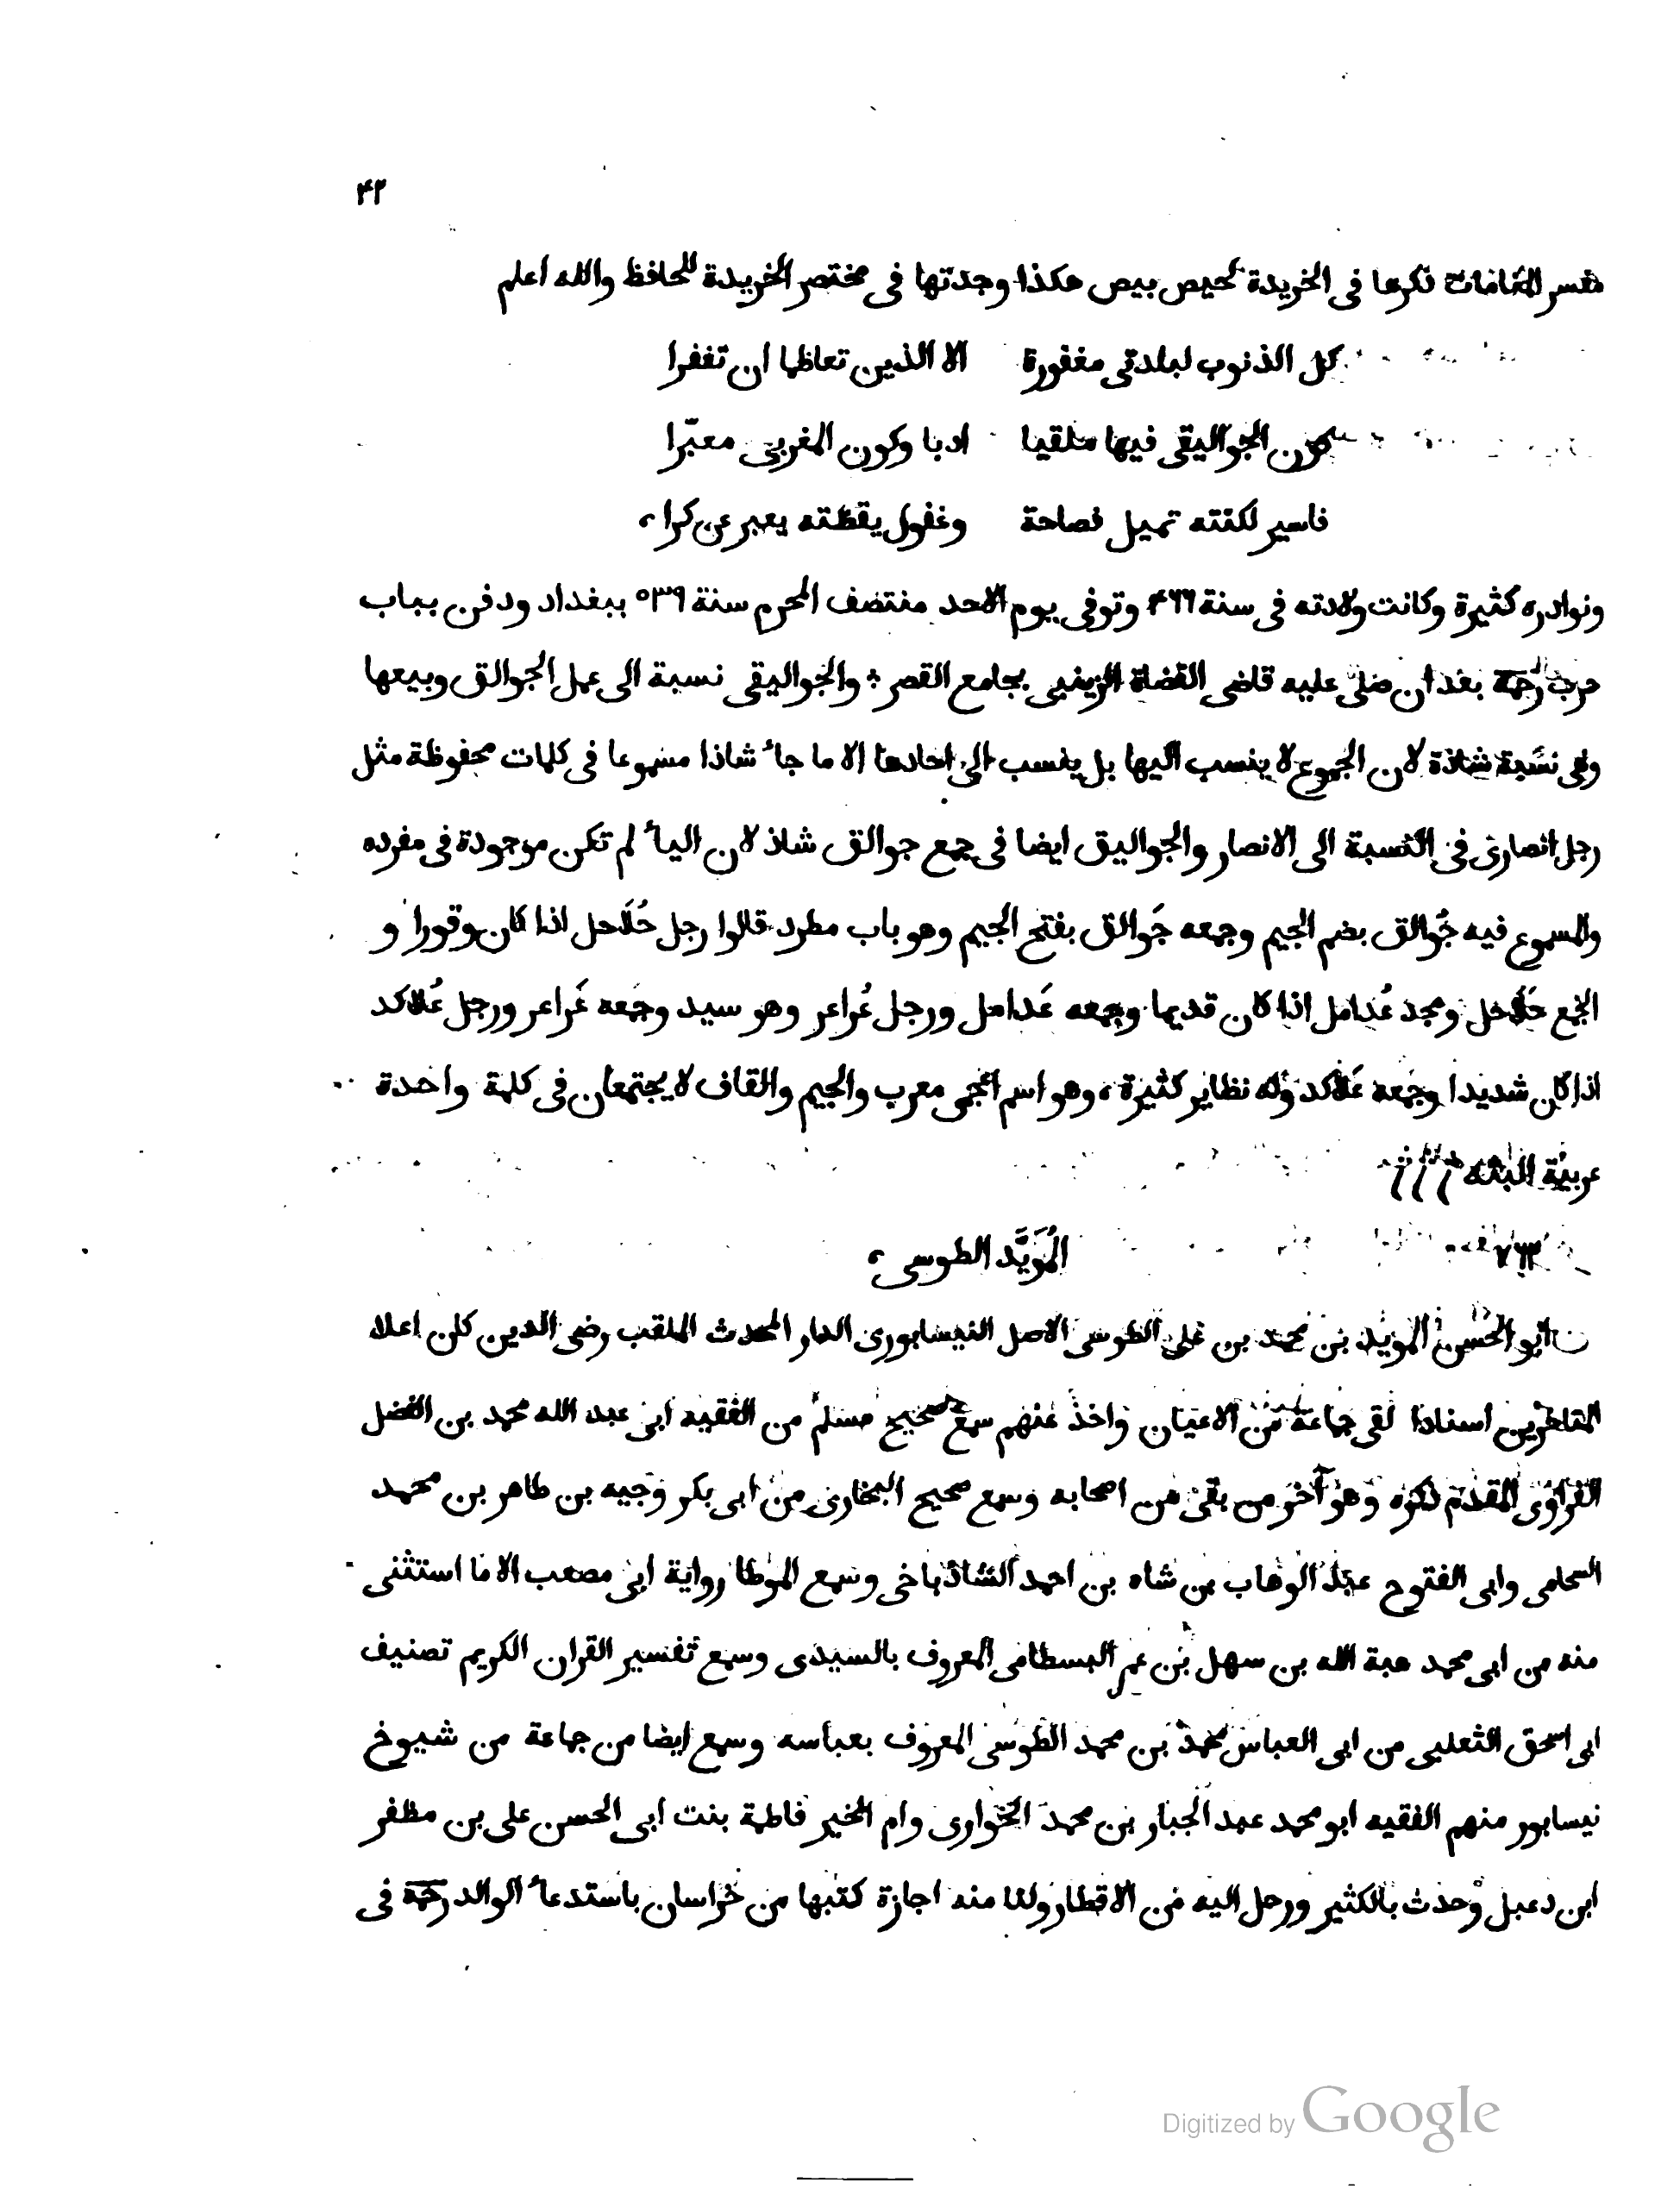 ۴۲
مفسر المنامات ذكرها فى الخريدة لحيص بيص هكذا وجدتها فى مختصر الخريدة للحافظ والله اعلم
كل الذنوب لبلدتى مغفورة الا الذين تعاظما ان تغفرا
كون الجواليقى فيها ملقيا ادبا وكون المغربى معبّرا
فاسير لكنته تميل فصاحة وغفول يقظته يعبر عن كراء
ونوادره كثيرة وكانت ولادته فى سنة ۴۶۶ وتوفى يوم الاحد منتصف المحرم سنة ۵۳۹ ببغداد ودفن بباب
حرب رحمة بعد ان صلى عليه قاضى القضاة الزينبى بجامع القصر؛ والجواليقى نسبة الى عمل الجوالق وبيعها
وهى نسَبة شاذة لان الجموع لا ينسب اليها بل ينسب الى احادها الا ما جاء شاذا مسموعا فى كلمات محفوظة مثل
رجل انصارى فى النسبة الى الانصار والجواليق ايضا فى جمع جوالق شاذ لان الياء لم تكن موجودة فى مفرده
والمسموع فيه جُوالق بضم الجيم وجمعه جَوالق بفتح الجيم وهو باب مطرد قالوا رجل حُلاحل اذا كان وقورا و
الجمع حَلاحل ومجد عُدامل اذا كان قديما وجمعه عَدامل ورجل عُراعر وهو سيد وجمعه عَراعر ورجل عُلاكد
اذا كان شديدا وجمعه عَلاكد وله نظاير كثيرة، وهو اسم اعجمى معرب والجيم والقاف لا يجتمعان فى كلمة واحدة
عربية البتة
۷۶۲
المُوَيَّد الطوسى،
ابو الحسن المويد بن محمد بن على الطوسى الاصل النيسابورى الدار المحدث الملقب رضى الدين كان اعلا
المتاخرين اسنادا لقى جماعة من الاعيان واخذ عنهم سمع صحيح مسلم من الفقيه ابى عبد الله محمد بن الفضل
الفراوى المقدم ذكره وهو آخر من بقى من اصحابه وسمع صحيح البخارى من ابى بكر وجيه بن طاهر بن محمد
الشحامى وابى الفتوح عبد الوهاب بن شاه بن احمد الشاذياخى وسمع الموطا رواية ابى مصعب الا ما استثنى
منه من ابى محمد هبة الله بن سهل بن عمر البسطامى المعروف بالسيدى وسمع تفسير القران الكريم تصنيف
ابى اسحق الثعلبى من ابى العباس محمد بن محمد الطوسى المعروف بعباسه وسمع ايضا من جماعة من شيوخ
نيسابور منهم الفقيه ابو محمد عبد الجبار بن محمد الخوارى وام الخير فاطمة بنت ابى الحسن على بن مظفر
ابن دعبل وحدث بالكثير ورحل اليه من الاقطار ولنا منه اجازة كتبها من خراسان باستدعاء الوالد رحمه فى
Digitized by Google